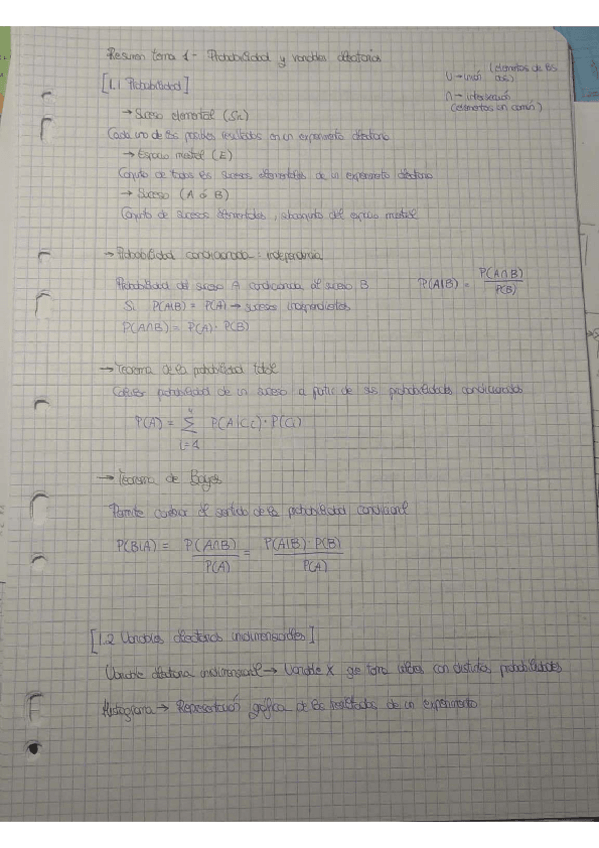 Resumen tema 1 - Probabilidad y variables aleatorias
U → unión (elementos de los dos)
∩ → intersección (elementos en común)
[1.1 Probabilidad]
→ Suceso elemental (Si)
Cada uno de los posibles resultados en un experimento aleatorio
→ Espacio muestral (E)
Conjunto de todos los sucesos elementales de un experimento aleatorio
→ Suceso (A ó B)
Conjunto de sucesos elementales, subconjunto del espacio muestral
→ Probabilidad condicionada: independencia
Probabilidad del suceso A condicionada al suceso B P(A|B) = P(A∩B) / P(B)
Si P(A|B) = P(A) → sucesos independientes
P(A∩B) = P(A) · P(B)
→ Teorema de la probabilidad total
Calcular probabilidad de un suceso a partir de sus probabilidades condicionadas
P(A) = Σ i=1 P(A|Ci) · P(Ci)
→ Teorema de Bayes
Permite cambiar el sentido de la probabilidad condicional
P(B|A) = P(A∩B) / P(A) = P(A|B) · P(B) / P(A)
[1.2 Variables aleatorias unidimensionales]
Variable aleatoria unidimensional → Variable X que toma valores con distintas probabilidades
Histograma → Representación gráfica de los resultados de un experimento